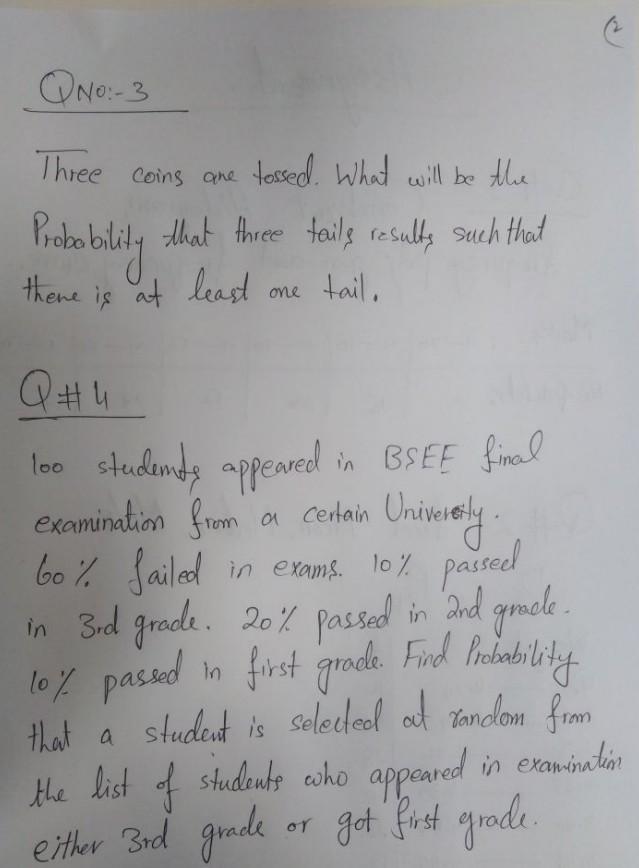 2
Q No:- 3
Three coins are tossed. What will be the
Probability that three tails results such that
there is at least one tail.
Q # 4
100 students appeared in BSEE final
examination from a certain University.
60 % failed in exams. 10 % passed
in 3rd grade. 20 % passed in 2nd grade.
10 % passed in first grade. Find Probability
that a student is selected at random from
the list of students who appeared in examination
either 3rd grade or got first grade.